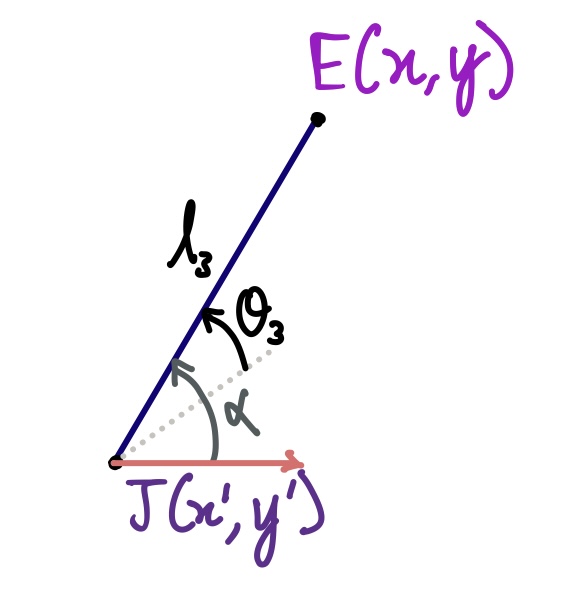 E(x,y)
l₃
θ₃
α
J(x',y')